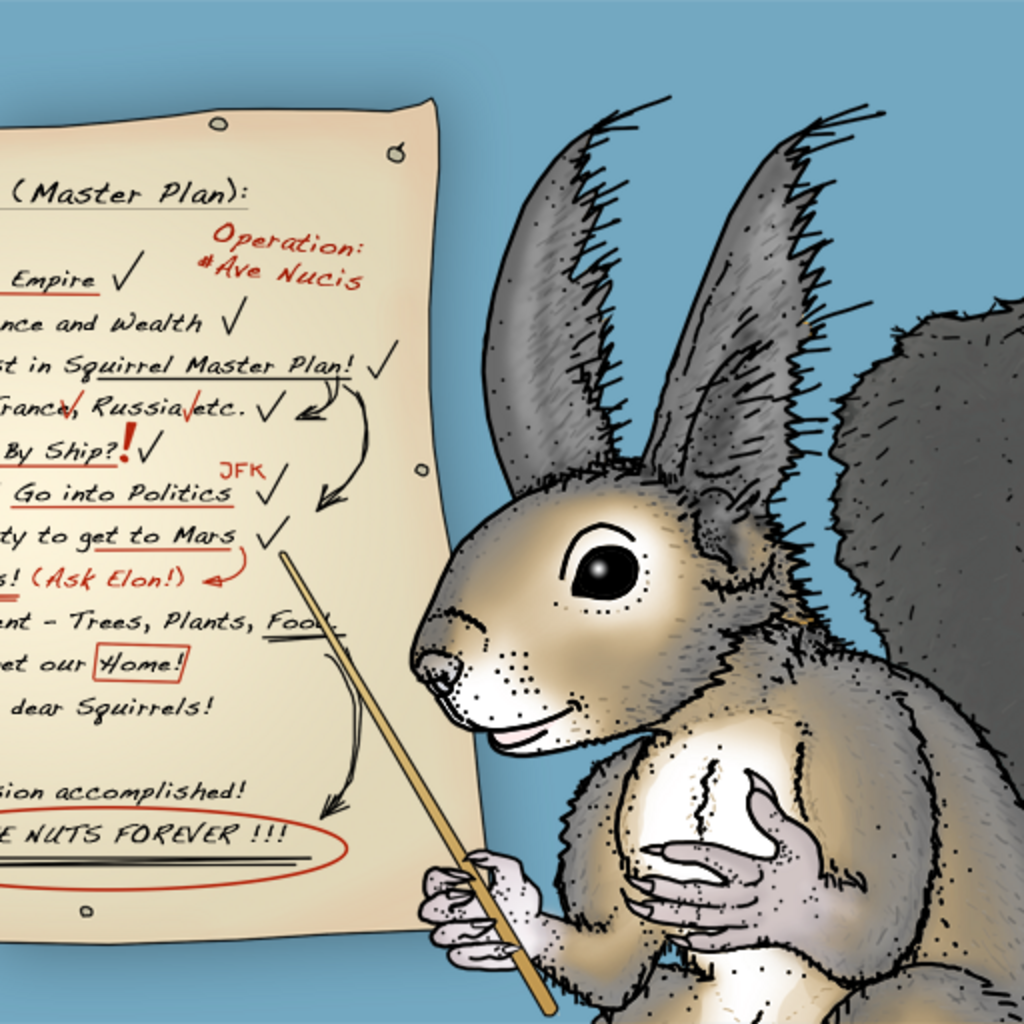 (Master Plan):
Operation:
#Ave Nucis
Empire ✓
nce and Wealth ✓
st in Squirrel Master Plan! ✓
rance, Russia, etc. ✓
By Ship?! ✓
JFK
Go into Politics ✓
ty to get to Mars ✓
s! (Ask Elon!)
ent - Trees, Plants, Food
et our Home!
dear Squirrels!
sion accomplished!
E NUTS FOREVER !!!